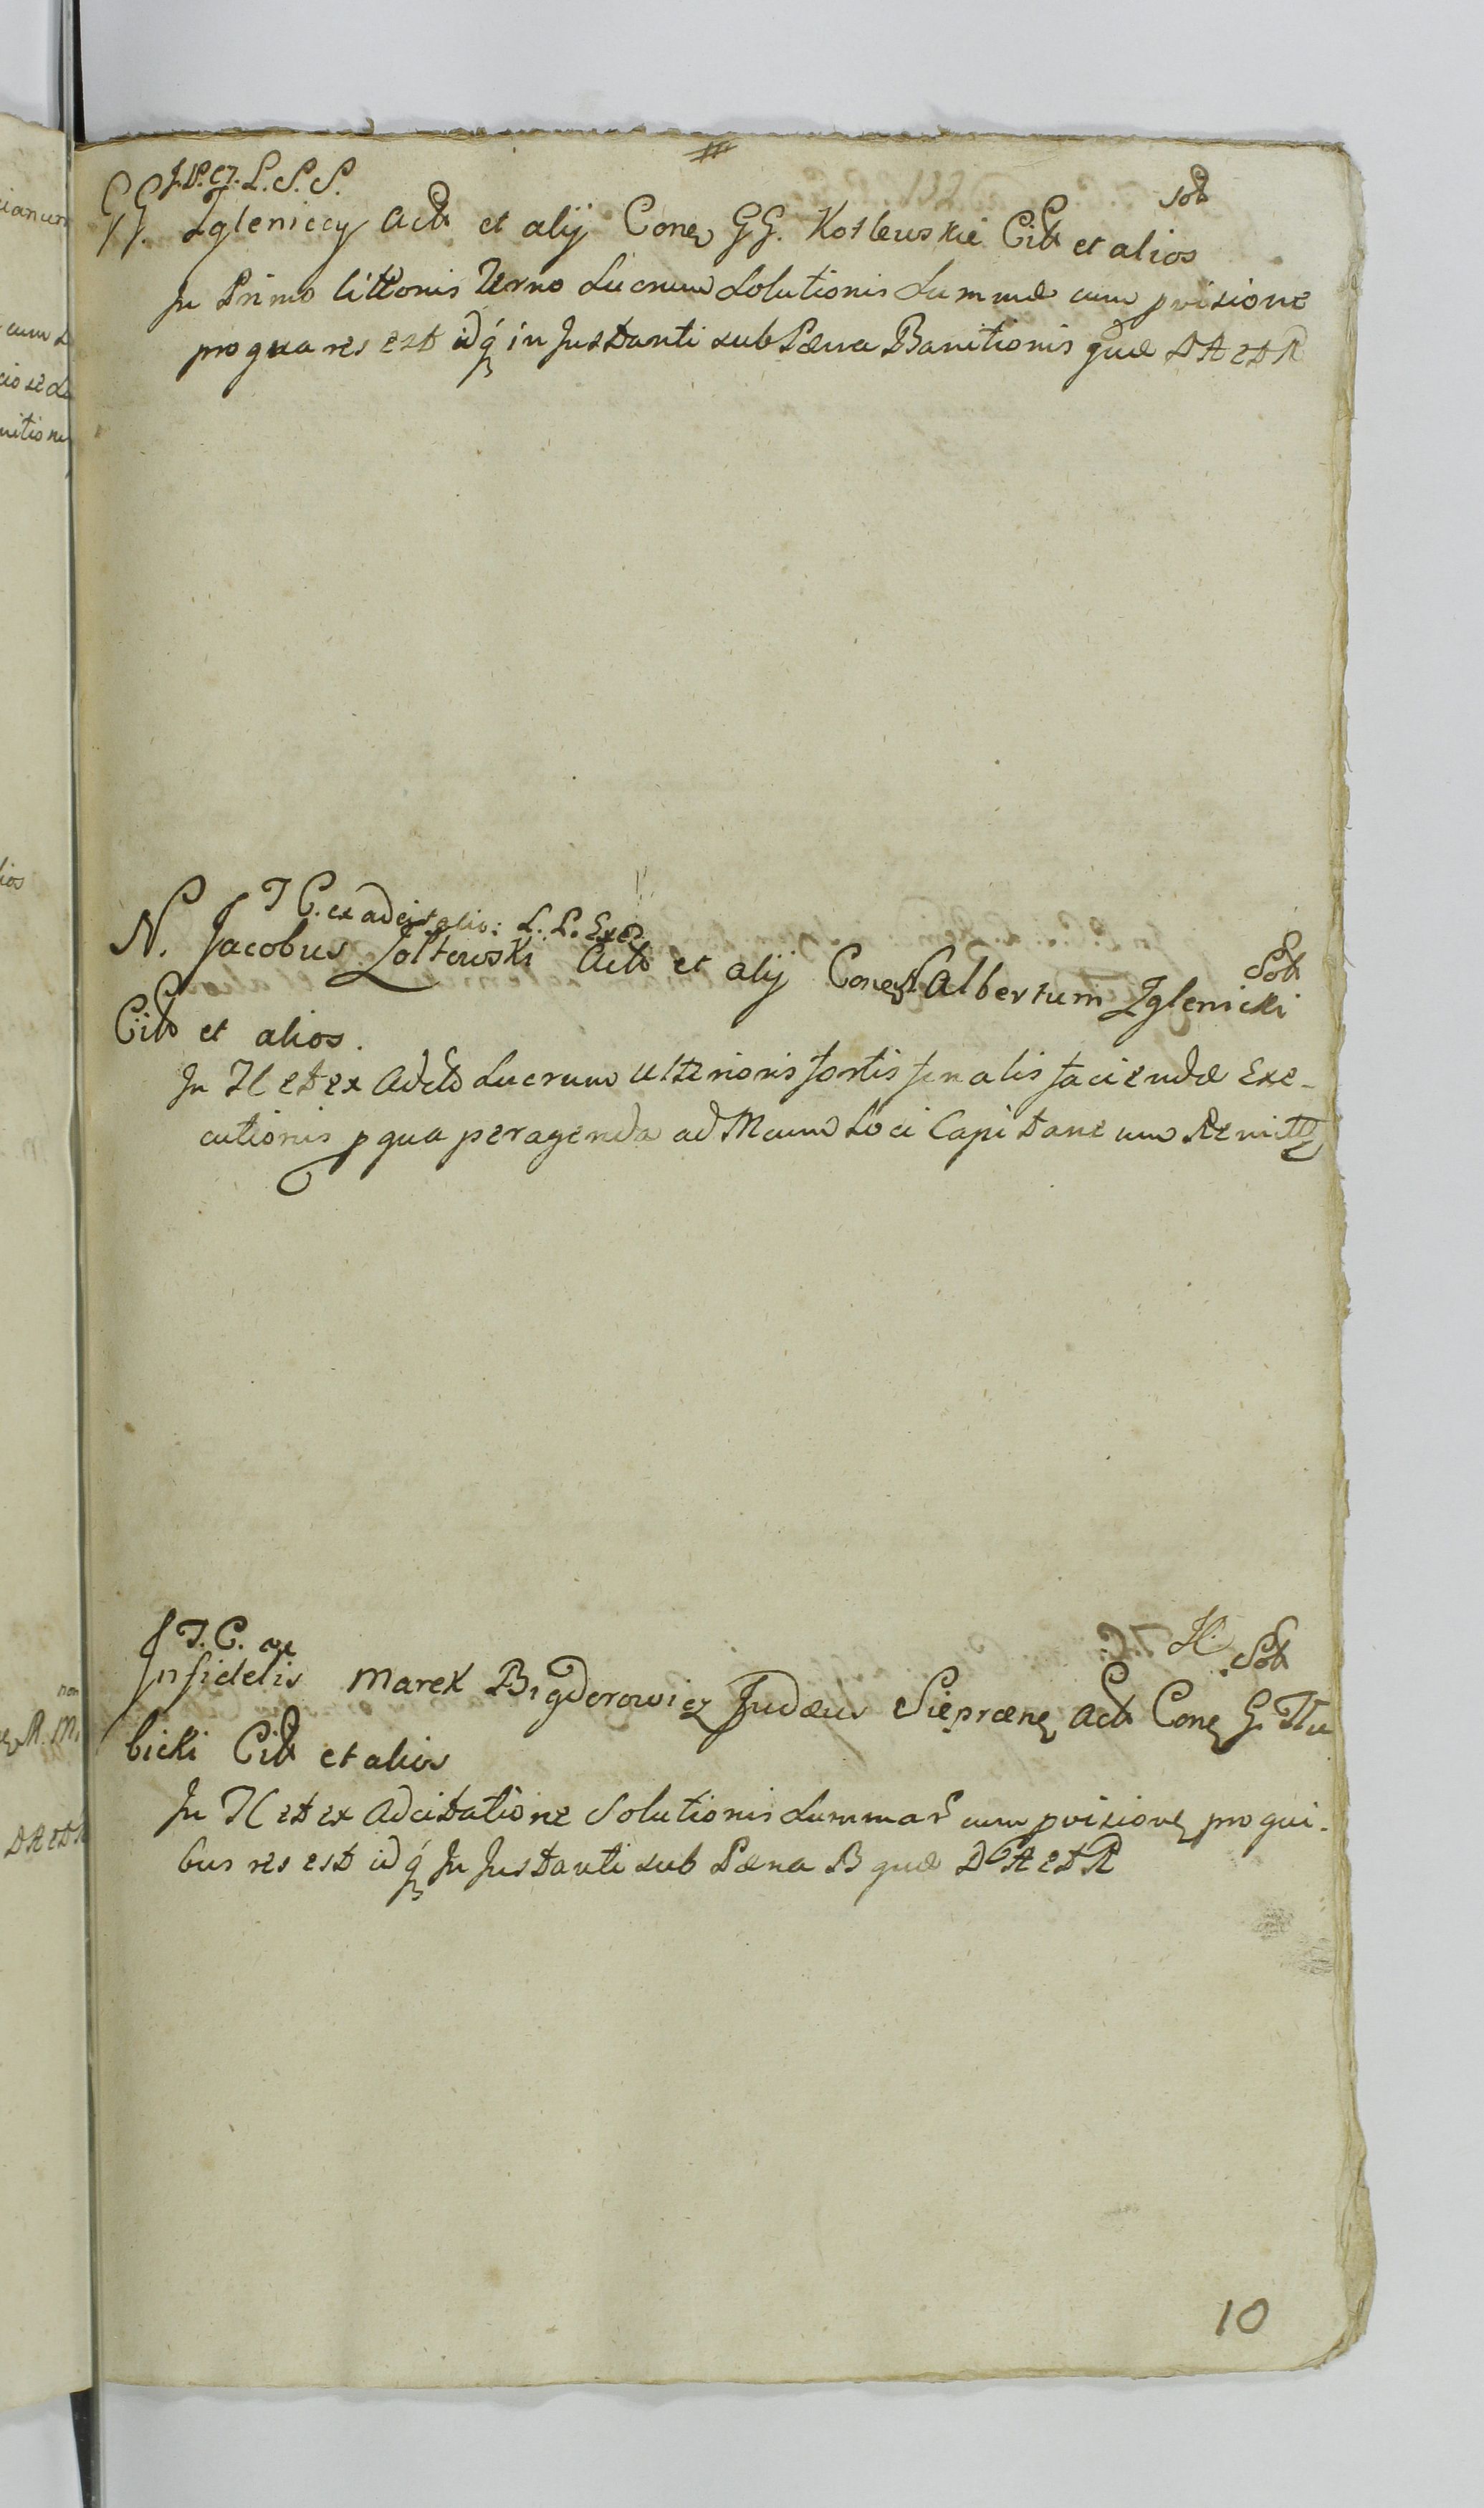 J.P.C7. L.S.S.
GG. Igleniccy Actt et alij Conq GG. Kotlewskie Citt et alios
Sott
In Primo littonis Terno Lucrum Solutionis Summæ cum pvisione
pro qua res est idq́ in Instanti sub Pœna Banitionis quæ DA et R
T C. ex adcitatio: L. P. Exeo
N. Jacobus Zoltowski Actt et alij Conq N Albertum Iglenicki
Sott
Citt et alios.
In TC et ex Adctt Lucrum ulterioris fortis finalis faciendæ Exe-
cutionis p qua peragenda ad Mcum Loci Capitaneum Remittq
T. C. ae
H. Sott
Infidelis Marek Bigdorowicz Judæus Sieprcenq Actt Conq G. Tłu
bicki Citt et alios
In TC et ex Adcitatione Solutionis Summar cum pvisionq pro qui-
bus res est idq́ In Instanti sub Pœna B quæ DA et R
10